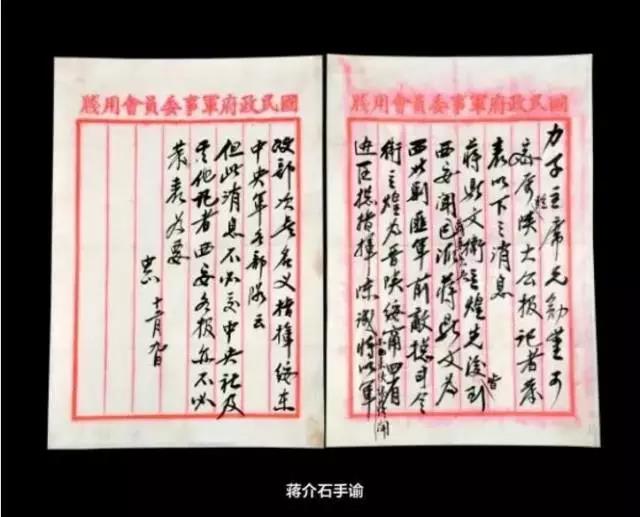 國民政府軍事委員會用牋
力子主席兄勛鑒可
密屬駐陝大公報記者發
表以下之消息
蔣鼎文衛立煌先後皆到
西安聞蔣委員長已派蔣鼎文為
西北剿匪軍前敵總司令
衛立煌為晉陝綏甯四省
邊區總指揮陳誠亦來謁蔣聞將以軍
國民政府軍事委員會用牋
政部次長名義指揮綏東
中央軍各部隊云
但此消息不必交中央社及
其他記者西安各報亦不必
發表為要
中正 十二月九日
蒋介石手谕